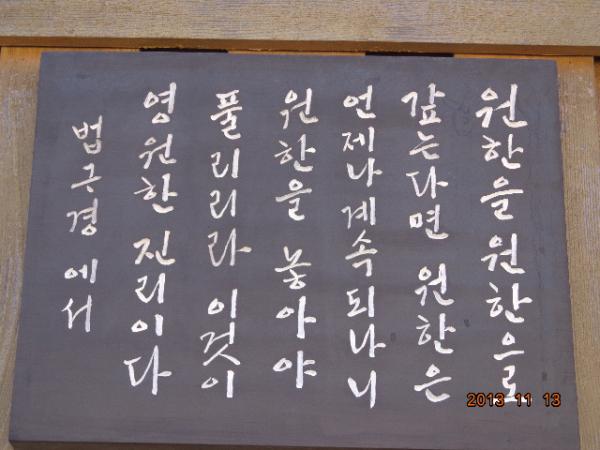 원한을 원한으로
갚는다면 원한은
언제나 계속되나니
원한을 놓아야
풀리리라 이것이
영원한 진리이다
법구경에서
2013 11 13